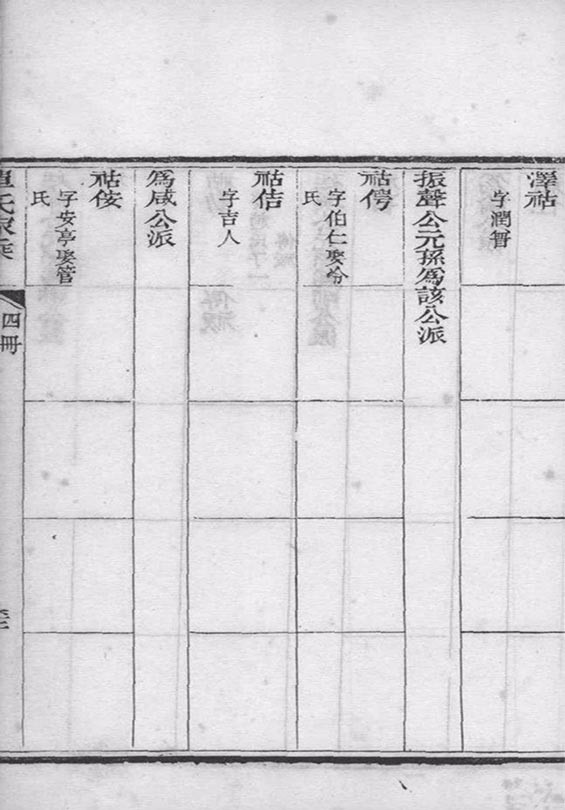 澤祜
字潤
振聲公元孫爲該公派
祜僗
字伯仁娶
氏
祜佶
字吉人
爲咸公派
祜侒
字安亭娶管
氏
氏家乘
四冊